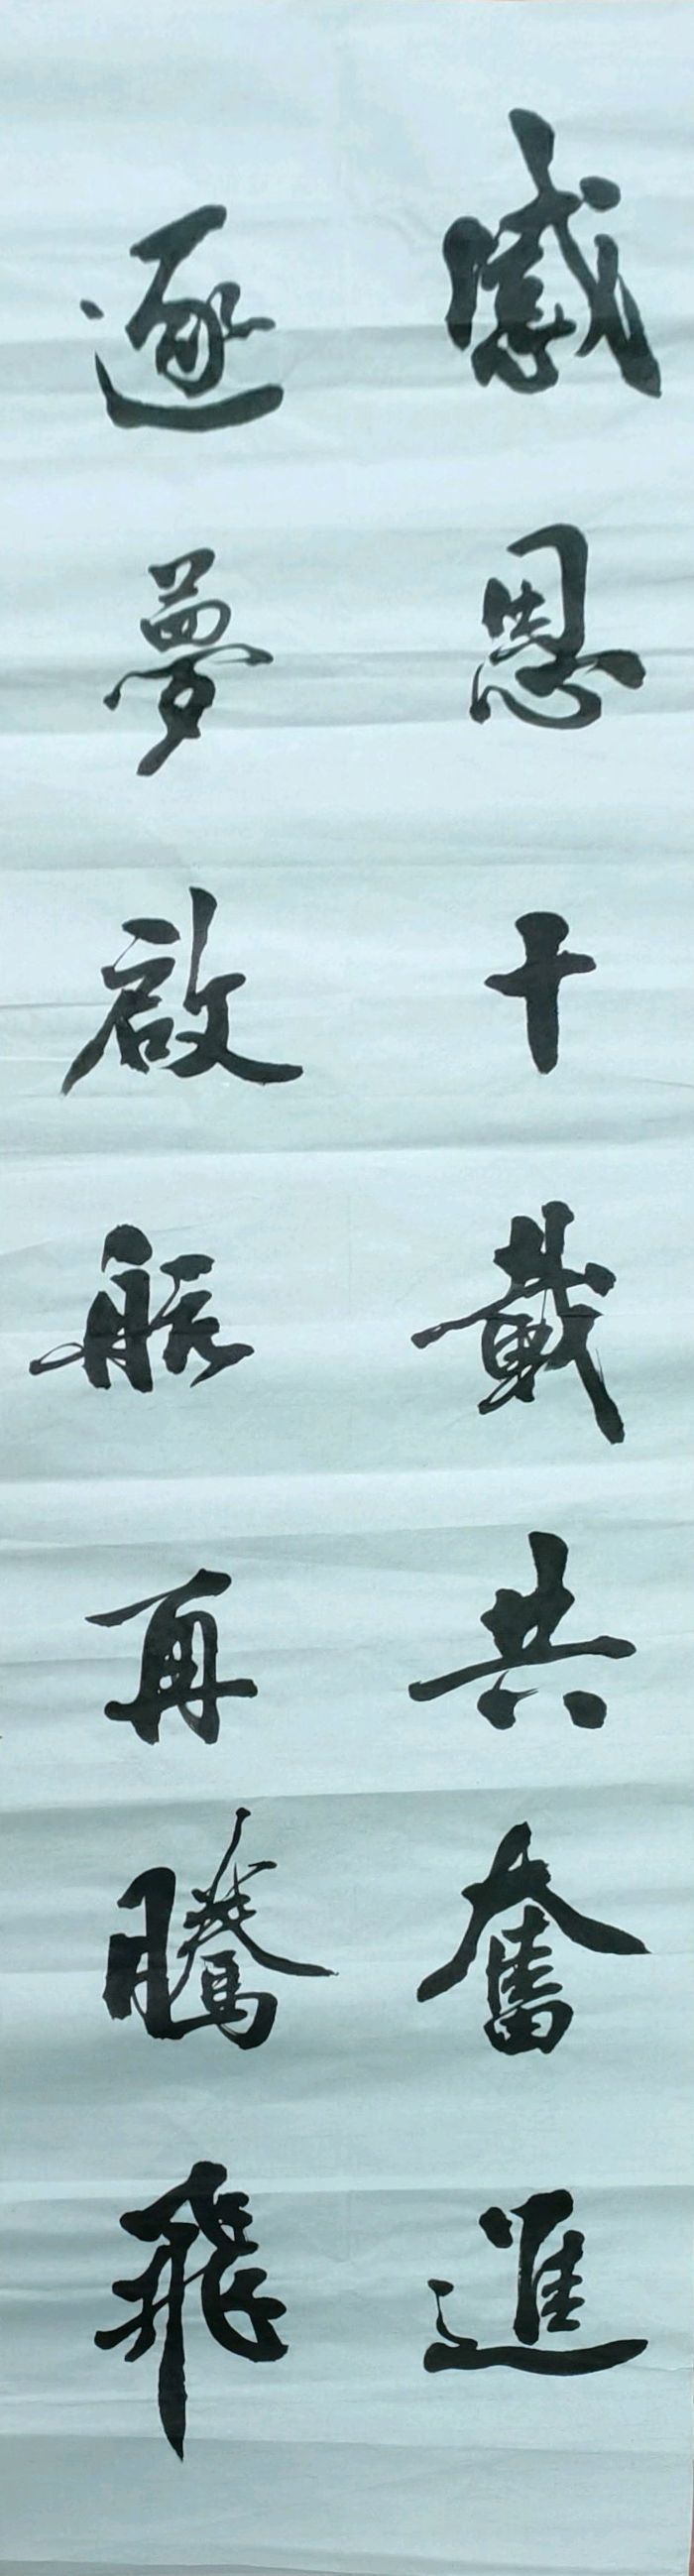 感恩十載共奮進
逐夢啟航再騰飛